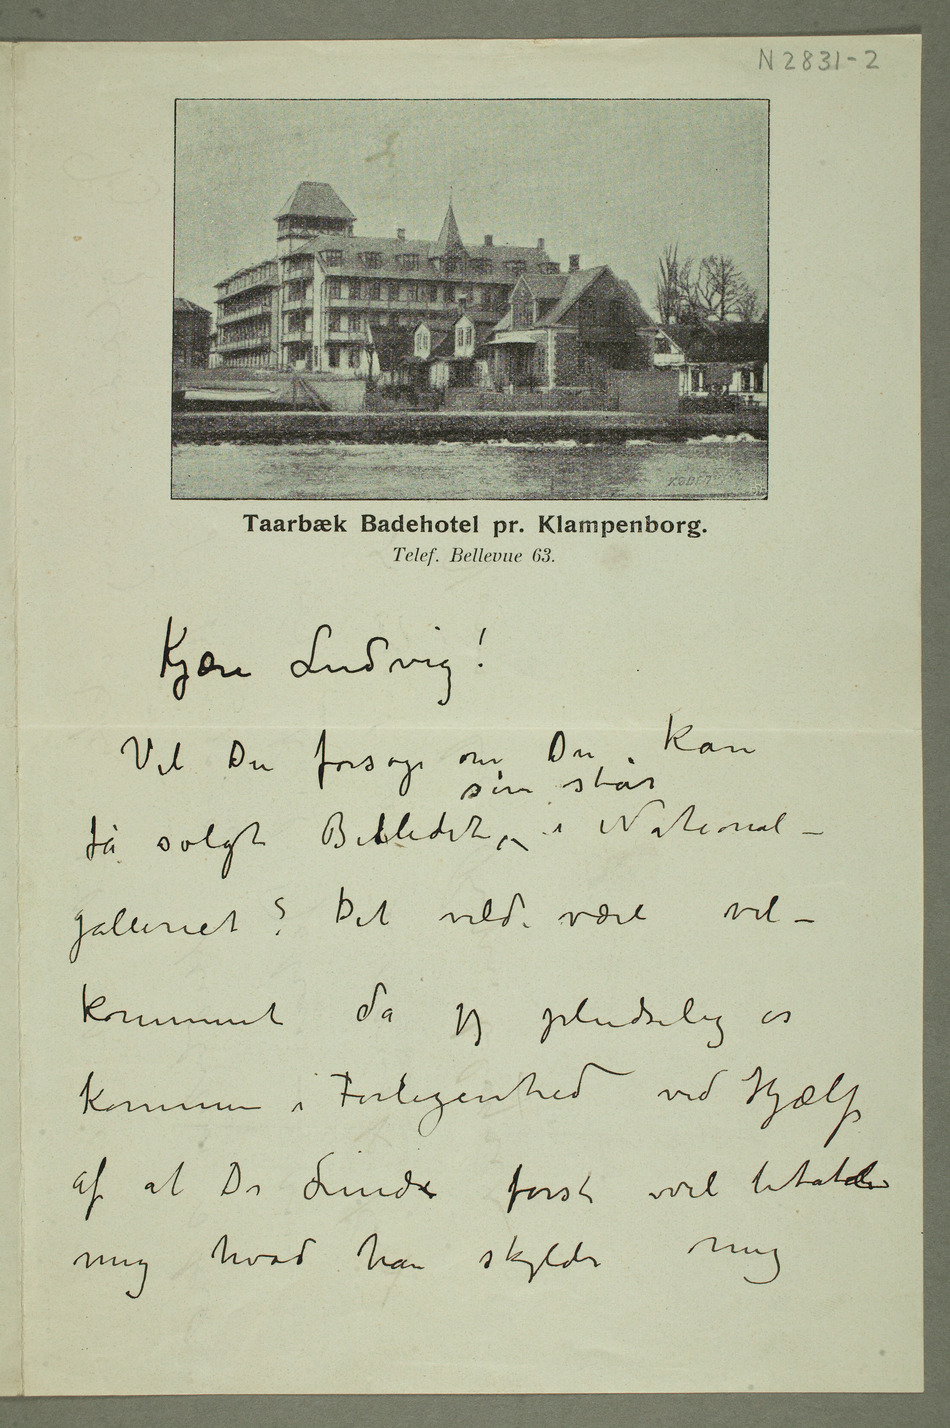 N 2831-2
KØBET
Taarbæk Badehotel pr. Klampenborg.
Telef. Bellevue 63.
Kjære Ludvig!
Vil Du forsøge om Du kan
som står
få solgt Billedet i National-
galleriet? Det vilde være vel-
komment da jeg pludselig er
kommen i Forlegenhed ved Hjælp
af at Dr Linde først vil betale
mig hvad han skylder mig